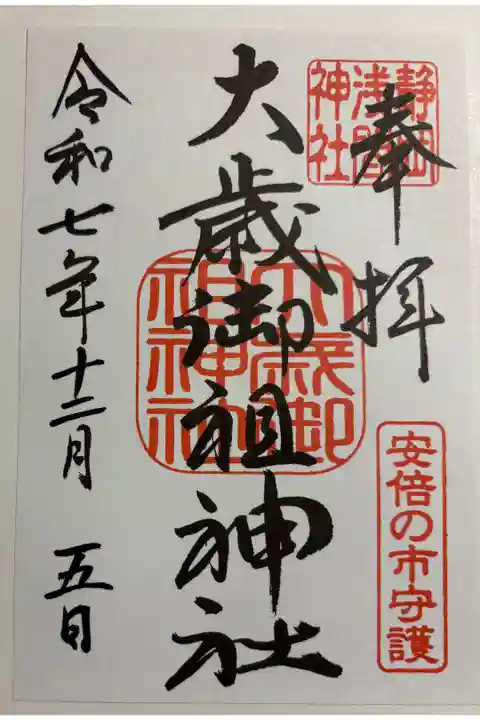 奉拝
静岡浅間神社
安倍の市守護
大歳御祖神社
大歳御祖神社
令和七年十二月 五日